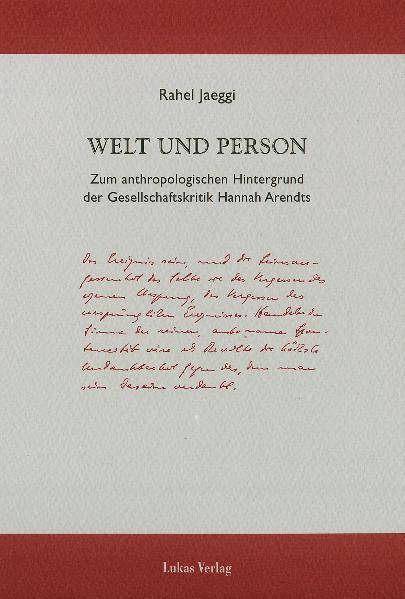 Rahel Jaeggi
WELT UND PERSON
Zum anthropologischen Hintergrund
der Gesellschaftskritik Hannah Arendts
Das Ereignis sein, und die
des Selbst wie das Vergessen des
eigenen Ursprungs, das Vergessen des
ursprünglichen Ereignisses.
Sinne der reinen,
wäre als Revolte die höchste
Undankbarkeit gegen das, dem man
sein Dasein verdankt.
Lukas Verlag